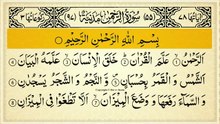 اٰيَاتُهَا ٧٨ (٥٥) سُوْرَةُ الرَّحْمٰنِ مَدَنِيَّةٌ (٩٧) رُكُوْعَاتُهَا ٣
بِسْمِ اللهِ الرَّحْمٰنِ الرَّحِيْمِ
اَلرَّحْمٰنُ ۝١ عَلَّمَ الْقُرْاٰنَ ۝٢ خَلَقَ الْاِنْسَانَ ۝٣ عَلَّمَهُ الْبَيَانَ ۝٤
اَلشَّمْسُ وَالْقَمَرُ بِحُسْبَانٍ ۝٥ وَّالنَّجْمُ وَالشَّجَرُ يَسْجُدٰنِ ۝٦
وَالسَّمَآءَ رَفَعَهَا وَوَضَعَ الْمِيْزَانَ ۝٧ اَلَّا تَطْغَوْا فِي الْمِيْزَانِ ۝٨